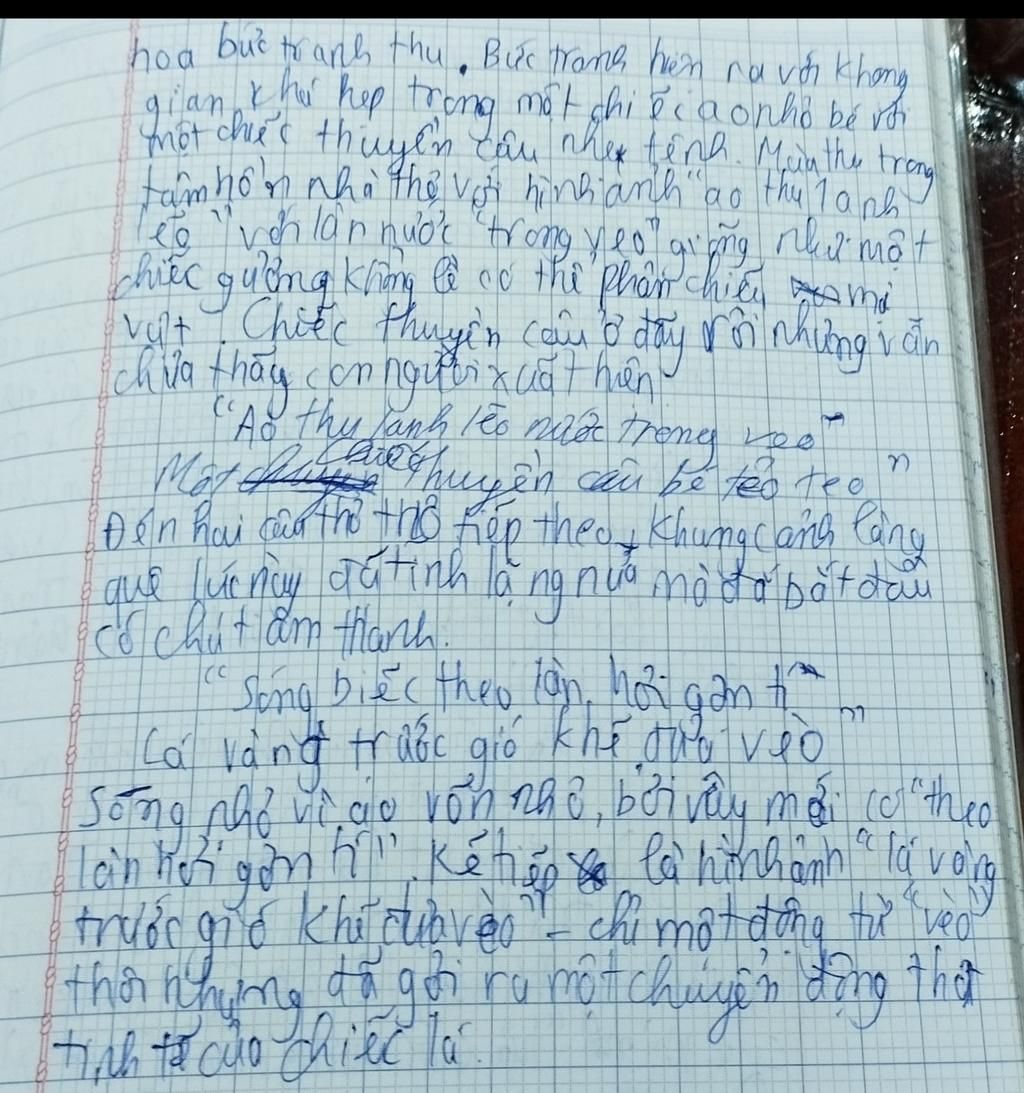 hoạ bức tranh thu. Bức tranh hiện ra với không
gian khá hẹp trong một chiếc ao nhỏ bé với
một chiếc thuyền câu nhẹ tênh. Mùa thu trong
tâm hồn nhà thơ với hình ảnh "ao thu lạnh
lẽo" với làn nước "trong veo" giống như một
chiếc gương khổng lồ có thể phản chiếu mọi
vật. Chiếc thuyền câu ở đây rồi nhưng vẫn
chưa thấy con người xuất hiện
"Ao thu lạnh lẽo nước trong veo
Một chiếc thuyền câu bé tẻo teo"
Đến hai câu thơ tiếp theo, khung cảnh làng
quê lúc này đã tĩnh lặng nữa mà đã bắt đầu
có chút âm thanh.
"Sóng biếc theo làn hơi gợn tí
Lá vàng trước gió khẽ đưa vèo"
Sóng nhỏ vì ao vốn nhỏ, bởi vậy mới có "theo
làn hơi gợn tí". Kế tiếp là hình ảnh "lá vàng
trước gió khẽ đưa vèo" - chỉ một động từ "vèo"
thôi nhưng đã gợi ra một chuyển động thật
tinh tế của chiếc lá.